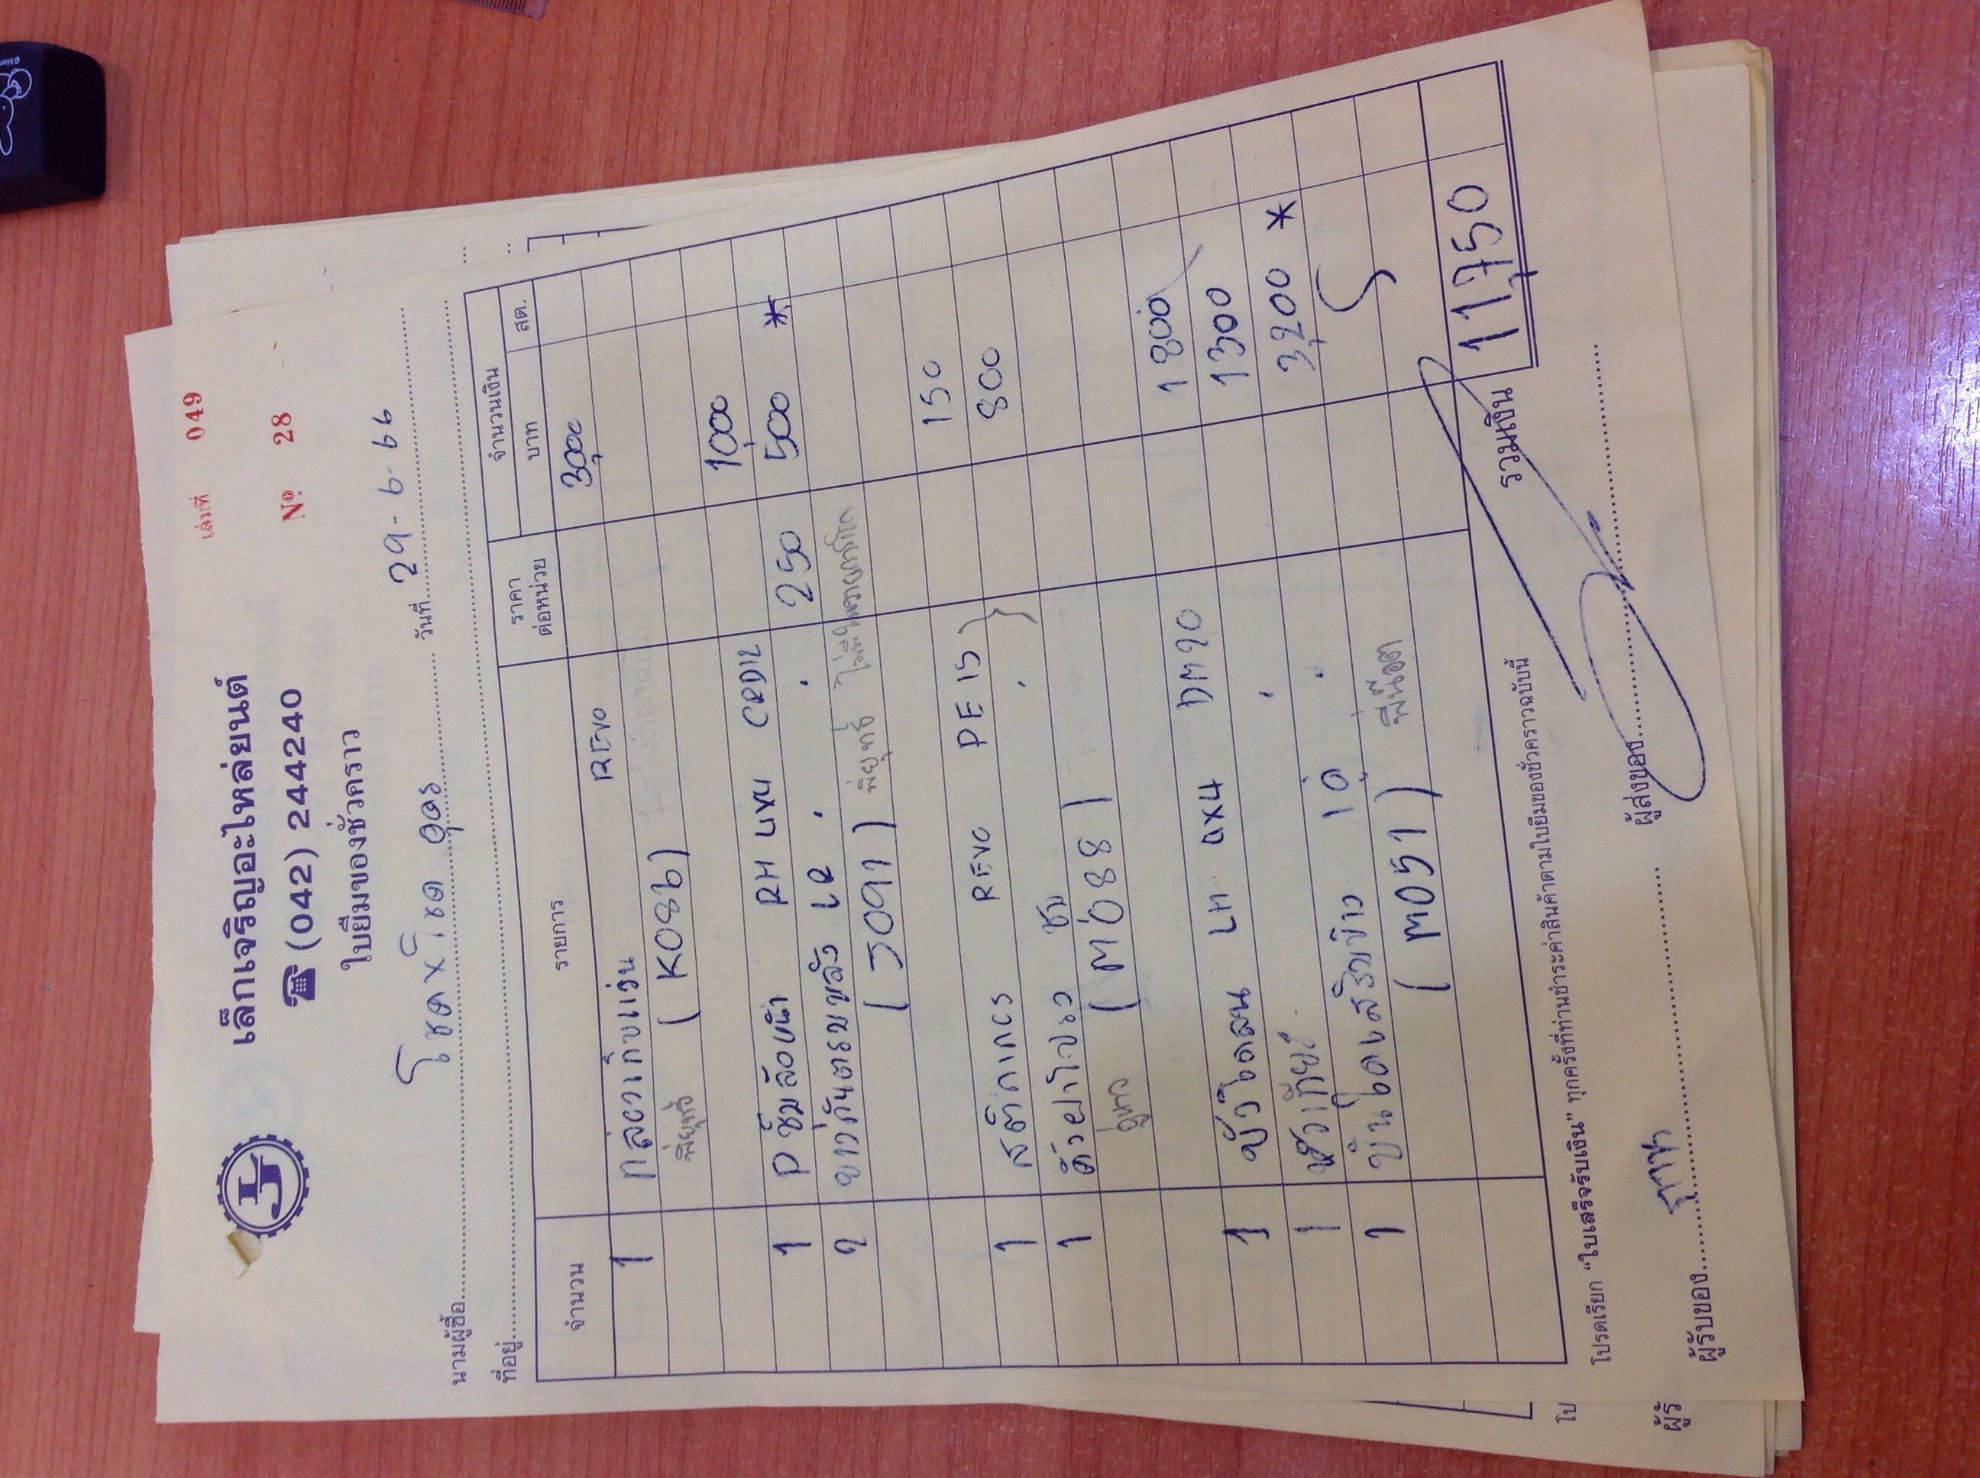 เล่มที่ 049
เล็กเจริญอะไหล่ยนต์
☎ (042) 244240
Nº 28
ใบยืมของชั่วคราว
นามผู้ซื้อ โชค x โชค อุดร วันที่ 29-6-66
ที่อยู่
จำนวน รายการ ราคาต่อหน่วย จำนวนเงิน
บาท สต.
1 กล่องเก็บแว่น REVO 3,000
พี่ยุทธ์ (K086)
1 P ซุ้มล้อหน้า RH 4x4 CRD12 1000
2 ยางกันตรบหลัง LR 250 500 *
(J091) พี่ยุทธ์
1 สติกเกอร์ REVO PE 15 150
1 800
(M088)
1 LH 4x4 DM90 1800
1 หัวเกียร์ 1300
1 10 3,200 *
(M051) พี่น๊อต
รวมเงิน 11,750
โปรดเรียก “ใบเสร็จรับเงิน” ทุกครั้งที่ท่านชำระค่าสินค้าตามใบยืมของชั่วคราวฉบับนี้
ผู้รับของ ผู้ส่งของ